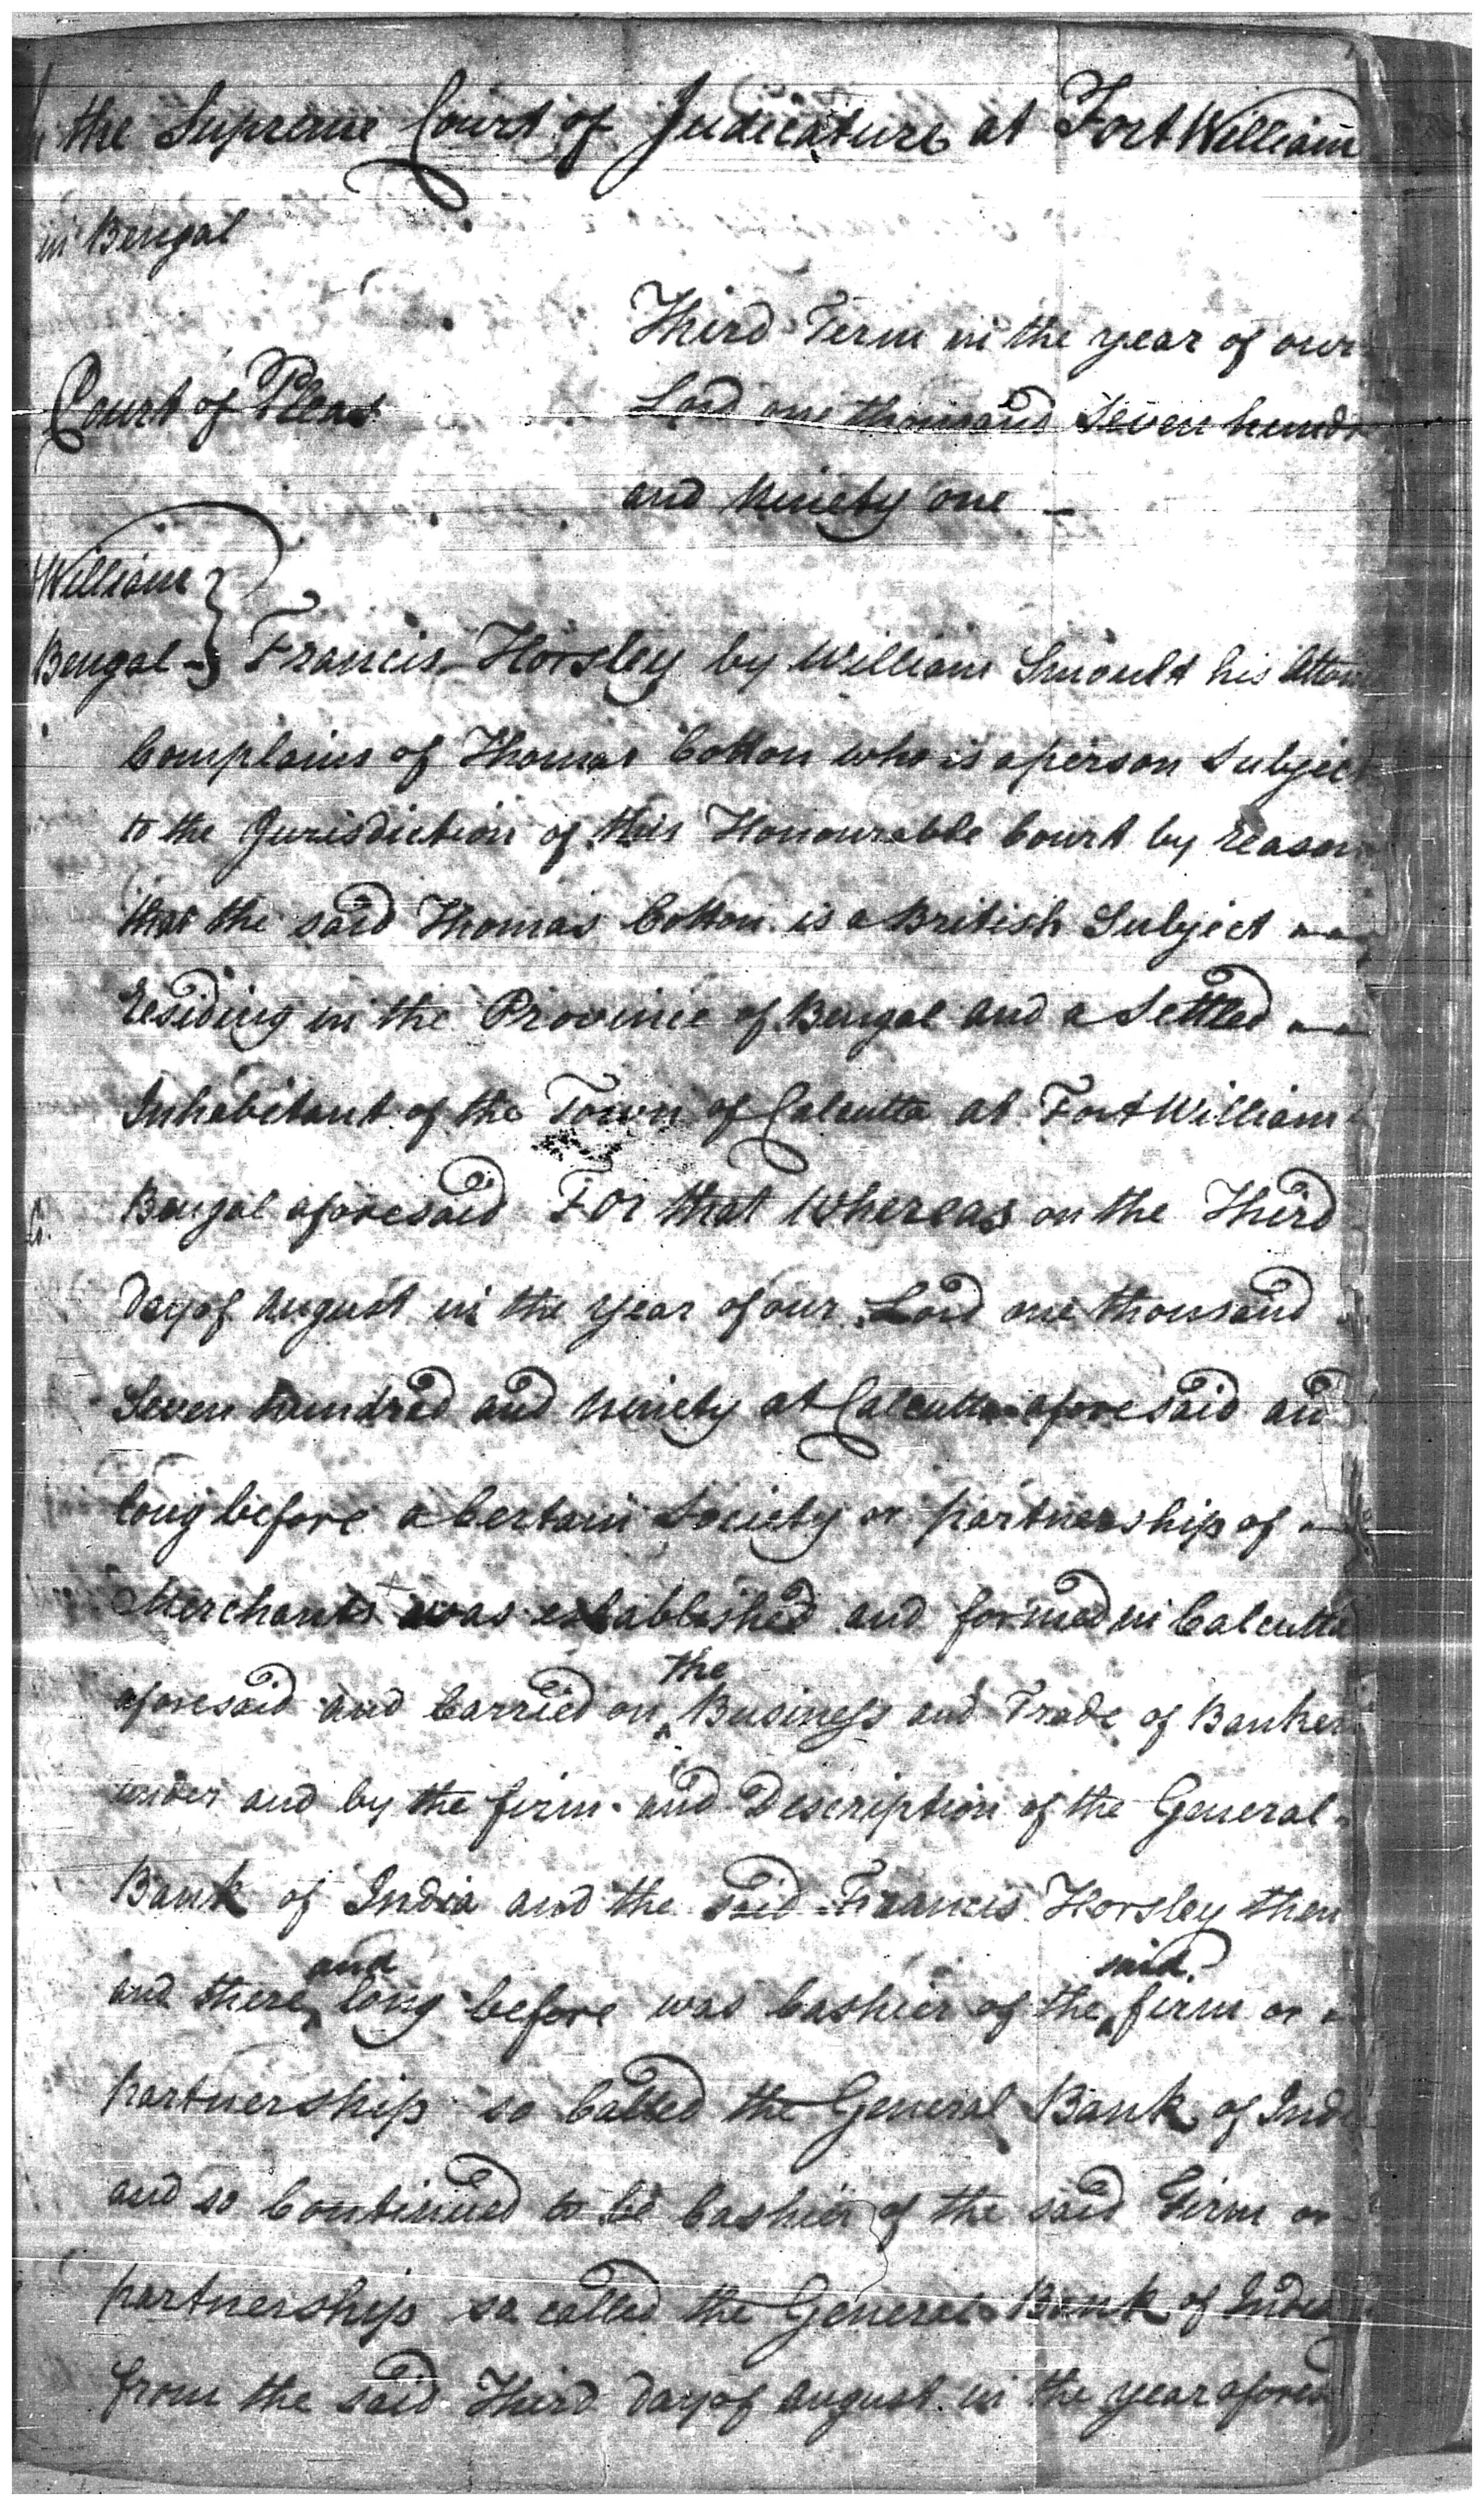 the Supreme Court of Judicature at Fort William
in Bengal
Third Term in the year of our
Court of Pleas
Lord one thousand Seven hundr
and Ninety one -
William
Bengal - } Francis Horsley by William Smoult his Attorn
Complains of Thomas Cotton who is a person Subject
to the Jurisdiction of this Honourable Court by reason
that the said Thomas Cotton is a British Subject
residing in the Province of Bengal and a Settled
Inhabitant of the Town of Calcutta at Fort William
Bengal aforesaid For that Whereas on the Third
day of August in the year of our Lord one thousand
Seven hundred and Ninety at Calcutta aforesaid and
long before a Certain Society or partnership of
Merchants was established and formed in Calcutta
the
aforesaid and Carried on ‸ Business and Trade of Banker
under and by the firm and Description of the General
Bank of India and the said Francis Horsley then
and said
and there ‸ long before was Cashier of the ‸ firm or
partnership so Called the General Bank of Indi
and so Continued to be Cashier of the said Firm or
partnership so called the General Bank of India
from the said Third day of August in the year afores